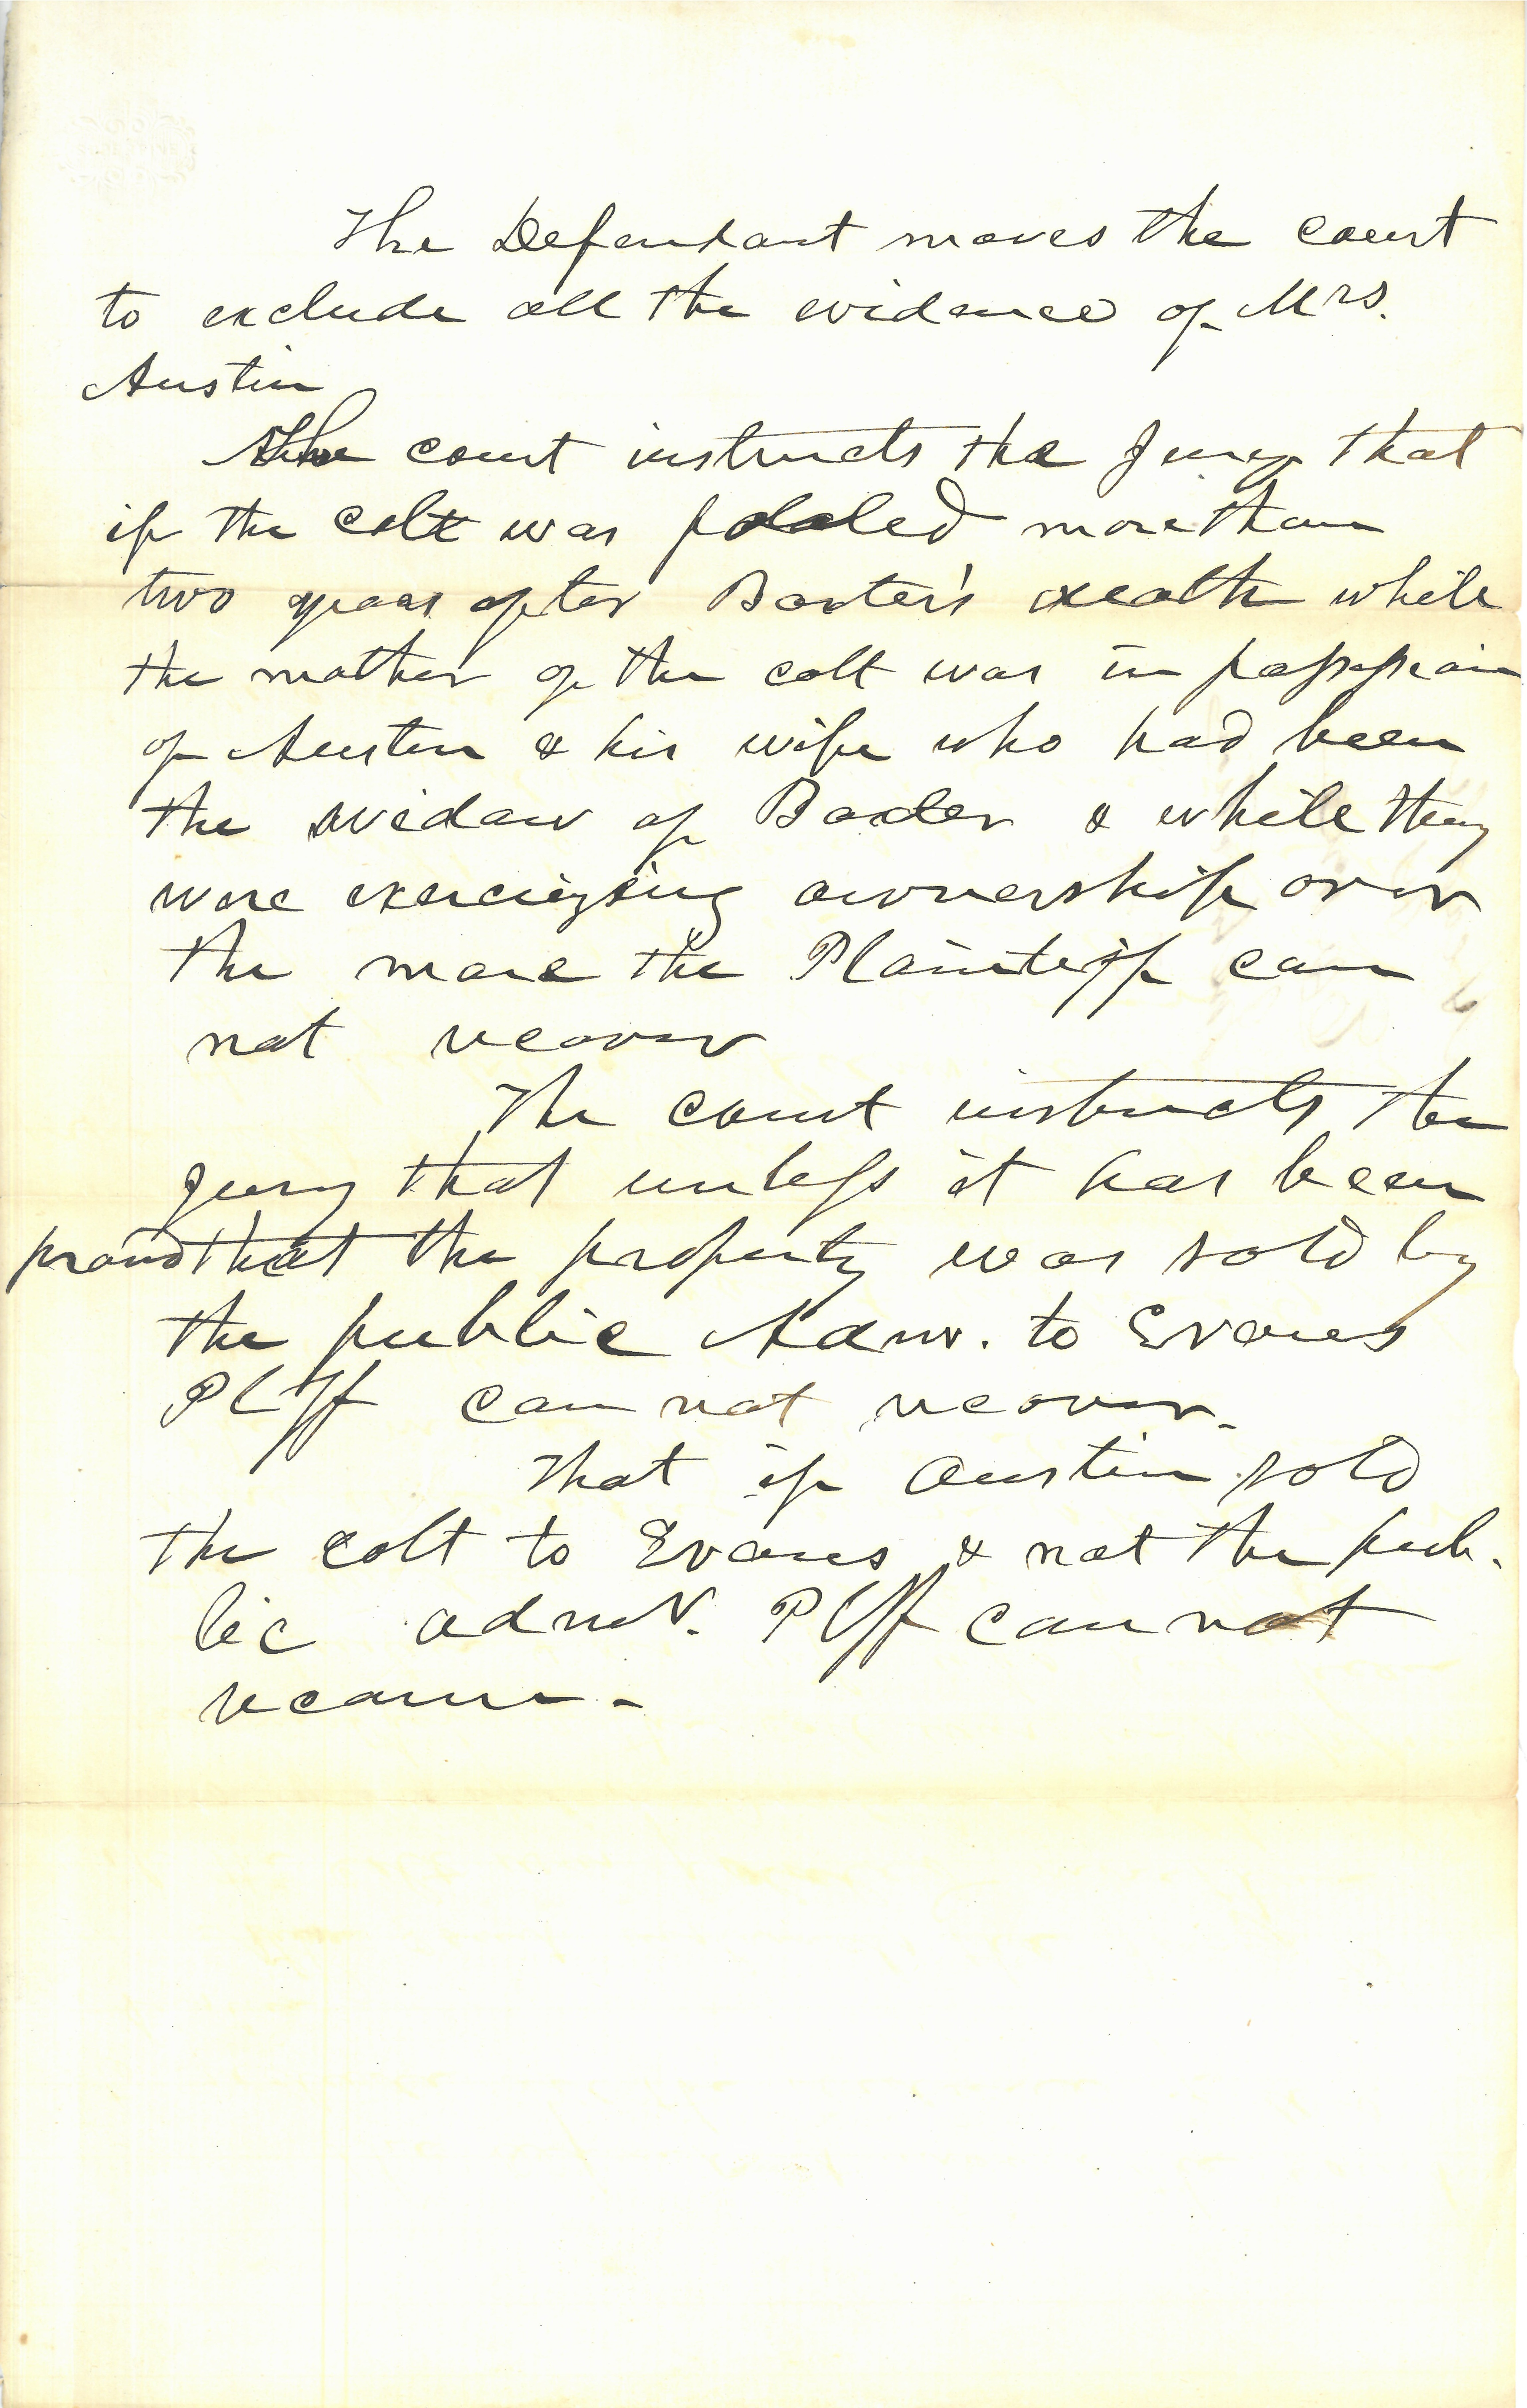 The Defendant moves the court
to exclude all the evidence of Mrs.
Austin
The court instructs the Jury that
if the colt was foaled more than
two years after Baxter's death while
the mother of the colt was in possession
of Austin & his wife who had been
the widow of Baxter & while they
were exercising ownership over
the mare the Plaintiff can
not recover
The court instructs the
jury that unless it has been
proved that the property was sold by
the public Admr. to Evans
Plff can not recover.
That if Austin sold
the colt to Evans & not the pub-
lic admr. Plff can not
recover -